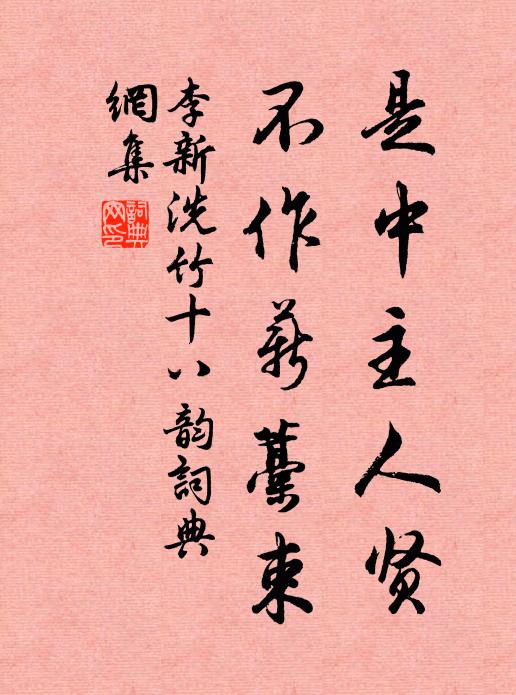 是中主人贤
不作薪藁束
李新洗竹十八韵詞典
網集
詞典
网印